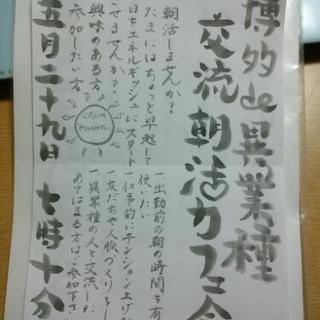 博多de異業種
交流朝活カフェ会
朝活しませんか？
たまにはちょっと早起して
一日をエネルギッシュにスタート
させませんか？
興味のある方
参加したい方
一、出勤前の朝の時間を有
使いたい
一、仕事前にテンション上げ
一、友だちや人脈づくりをし
一、異業種の人と交流した
あてはまる方はご参加下さ
五月二十九日 七時十分